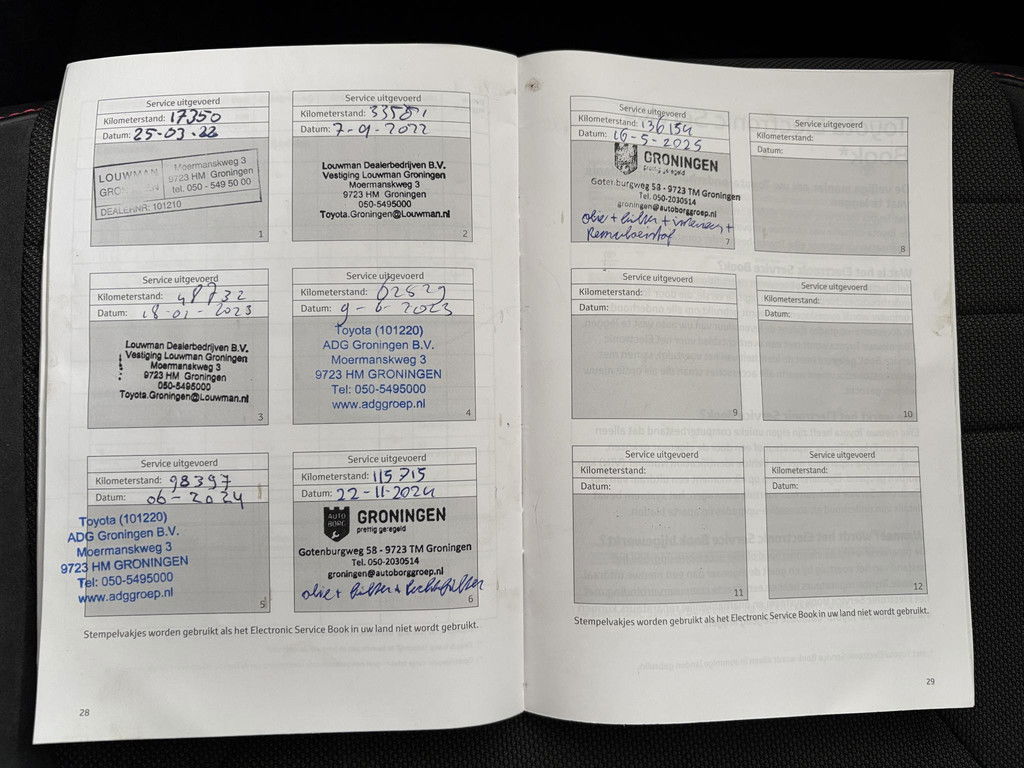 Service uitgevoerd
Kilometerstand: 17350
Datum: 25-03-22
LOUWMAN
GRONINGEN
Moermanskweg 3
9723 HM Groningen
tel. 050 - 549 50 00
DEALERNR: 101210
1
Service uitgevoerd
Kilometerstand: 33581
Datum: 7-9-2022
Louwman Dealerbedrijven B.V.
Vestiging Louwman Groningen
Moermanskweg 3
9723 HM Groningen
050-5495000
Toyota.Groningen@Louwman.nl
2
Service uitgevoerd
Kilometerstand: 48932
Datum: 18-01-2023
Louwman Dealerbedrijven B.V.
Vestiging Louwman Groningen
Moermanskweg 3
9723 HM Groningen
050-5495000
Toyota.Groningen@Louwman.nl
3
Service uitgevoerd
Kilometerstand: 62829
Datum: 9-6-2023
Toyota (101220)
ADG Groningen B.V.
Moermanskweg 3
9723 HM GRONINGEN
Tel: 050-5495000
www.adggroep.nl
4
Service uitgevoerd
Kilometerstand: 98397
Datum: 06-2024
Toyota (101220)
ADG Groningen B.V.
Moermanskweg 3
9723 HM GRONINGEN
Tel: 050-5495000
www.adggroep.nl
5
Service uitgevoerd
Kilometerstand: 115715
Datum: 22-11-2024
AUTO
BORG
GRONINGEN
prettig geregeld
Gotenburgweg 58 - 9723 TM Groningen
Tel. 050-2030514
groningen@autoborggroep.nl
olie + filter + luchtfilter
6
Stempelvakjes worden gebruikt als het Electronic Service Book in uw land niet wordt gebruikt.
28
Service uitgevoerd
Kilometerstand: 136154
Datum: 16-5-2025
GRONINGEN
prettig geregeld
Gotenburgweg 58 - 9723 TM Groningen
Tel. 050-2030514
groningen@autoborggroep.nl
olie + filter + interieur +
Remvloeistof
7
Service uitgevoerd
Kilometerstand:
Datum:
8
Service uitgevoerd
Kilometerstand:
Datum:
9
Service uitgevoerd
Kilometerstand:
Datum:
10
Service uitgevoerd
Kilometerstand:
Datum:
11
Service uitgevoerd
Kilometerstand:
Datum:
12
Stempelvakjes worden gebruikt als het Electronic Service Book in uw land niet wordt gebruikt.
29